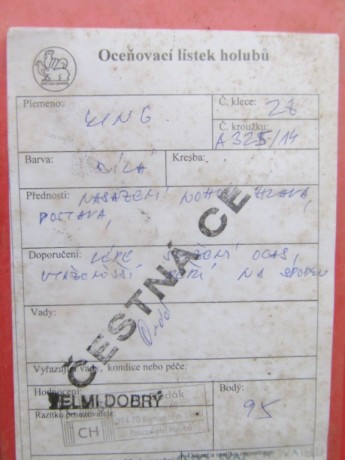 Oceňovací lístek holubů
Plemeno: KING
Č. klece: 28
Č. kroužku:
A325/14
Barva: BÍLÁ
Kresba:
Přednosti: NASAZENÍ NOHOU, HLAVA,
POSTAVA,
Doporučení: LÉPE OCAS,
NA SPODKU
ČESTNÁ CE
Vady:
Vyřazující vady, kondice nebo péče:
Hodnocení:
VELMI DOBRÝ
Razítko posuzovatele:
CH
Body:
95